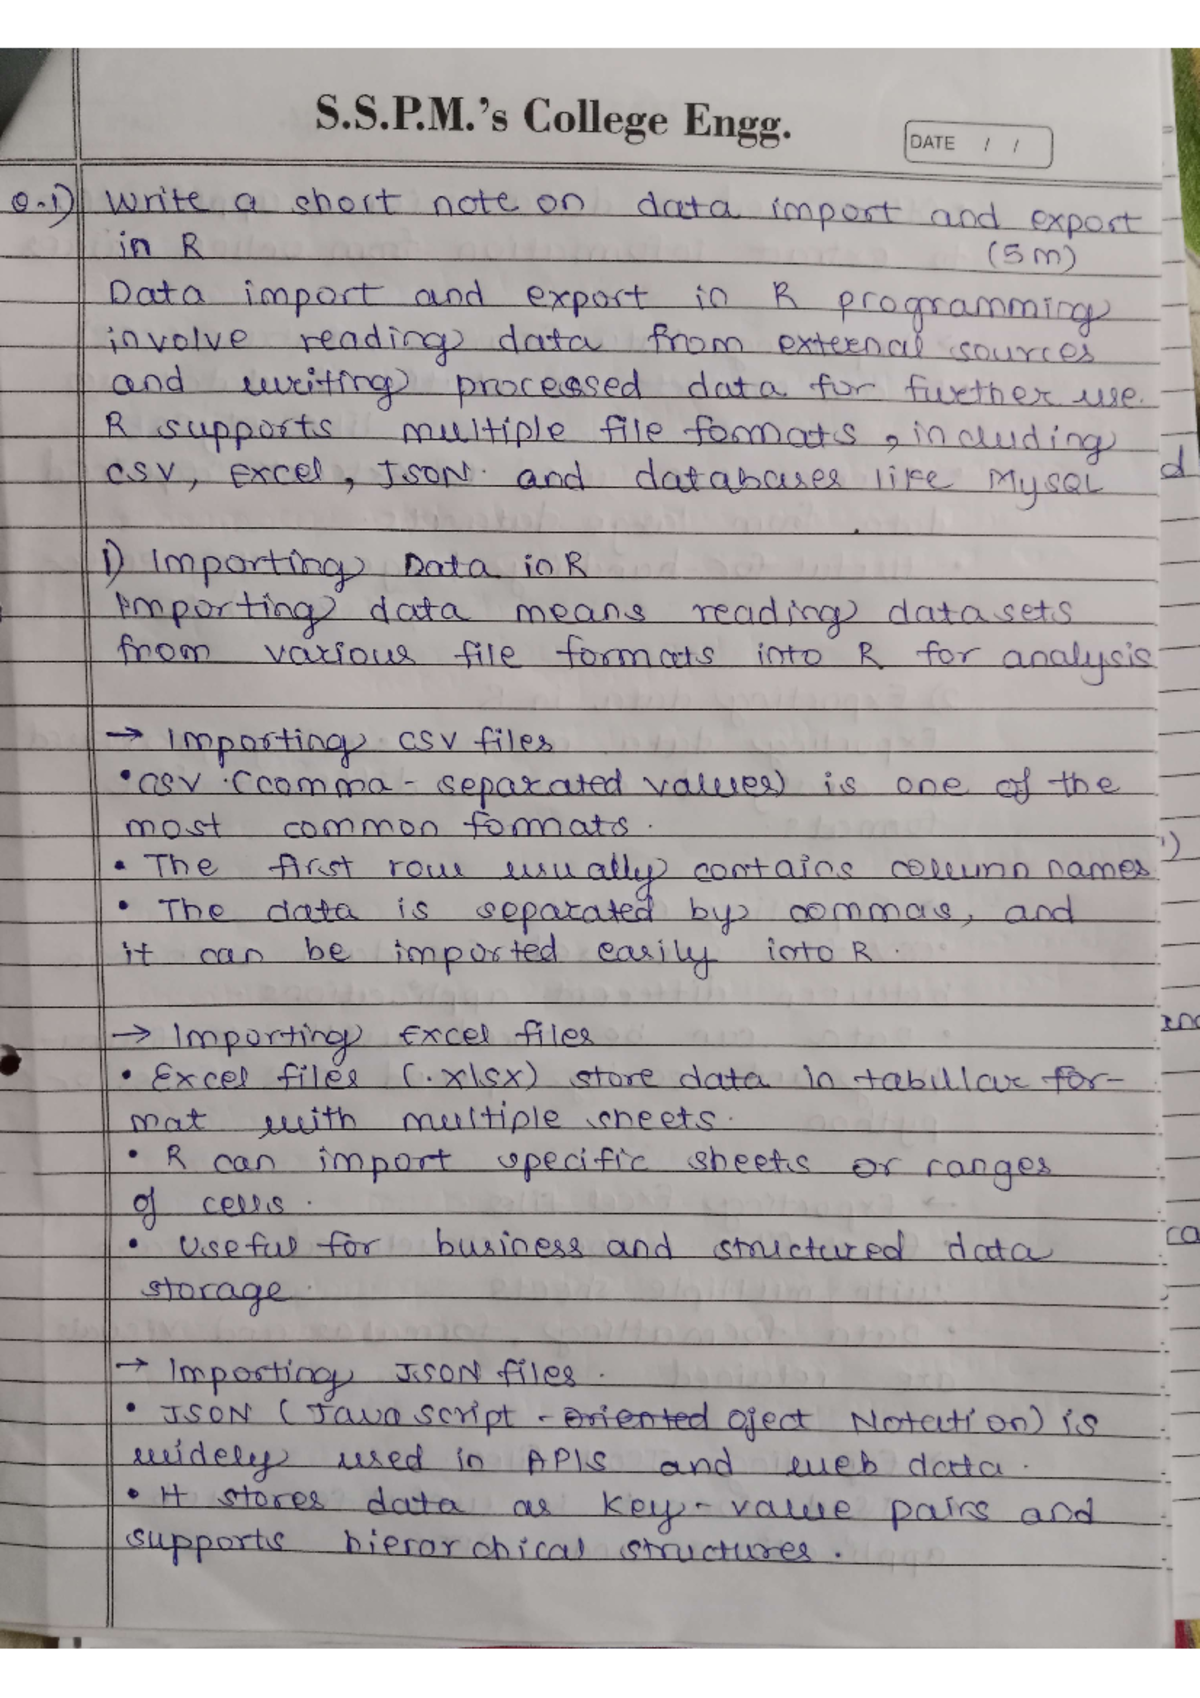 S.S.P.M.'s College Engg.
DATE / /
Q.1) Write a short note on data import and export
in R (5m)
Data import and export in R programming
involve reading data from external sources
and writing processed data for further use.
R supports multiple file formats, including
CSV, Excel, JSON and databases like MySQL
1) Importing Data in R
Importing data means reading datasets
from various file formats into R for analysis
→ Importing CSV files
• CSV (comma-separated values) is one of the
most common formats.
• The first row usually contains column names
• The data is separated by commas, and
it can be imported easily into R.
→ Importing Excel files
• Excel files (.xlsx) store data in tabular for-
mat with multiple sheets.
• R can import specific sheets or ranges
of cells.
• Useful for business and structured data
storage.
→ Importing JSON files.
• JSON (Javascript - oriented oject Notation) is
widely used in APIS and web data.
• It stores data as key-value pairs and
supports hierarchical structures.